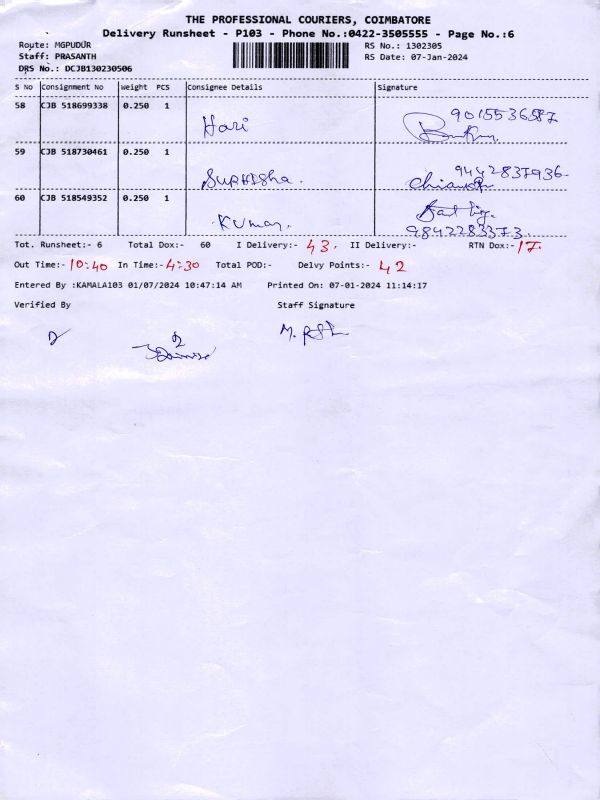 THE PROFESSIONAL COURIERS, COIMBATORE
Delivery Runsheet - P103 - Phone No.:0422-3505555 - Page No.:6
Route: MGPUDUR RS No.: 1302305
Staff: PRASANTH RS Date: 07-Jan-2024
DRS No.: DCJB130230506
S No Consignment No Weight PCS Consignee Details Signature
58 CJB 518699338 0.250 1 Hari 9015536587
59 CJB 518730461 0.250 1 9442837936
60 CJB 518549352 0.250 1 Kumar. 9842283373.
Tot. Runsheet:- 6 Total Dox:- 60 I Delivery:- 43. II Delivery:- RTN Dox:- 17.
Out Time:- 10:40 In Time:- 4:30 Total POD:- Delvy Points:- 42
Entered By :KAMALA103 01/07/2024 10:47:14 AM Printed On: 07-01-2024 11:14:17
Verified By Staff Signature